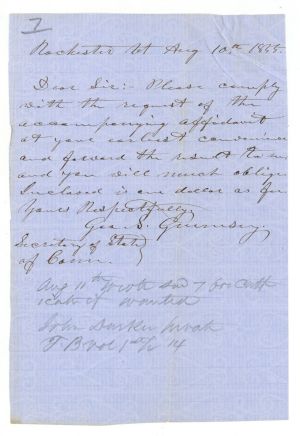 I
Rochester Vt Aug 10th 1865.
Dear Sir:- Please comply
with the request of the
accompanying affidavit
at your earliest convenience
and forward the result to me
and you will much oblige
Inclosed is one dollar as fee
Yours Respectfully,
Geo. S. Guernsey.
Secretary of State
of Conn.
Aug 11th wrote
wanted
John
14